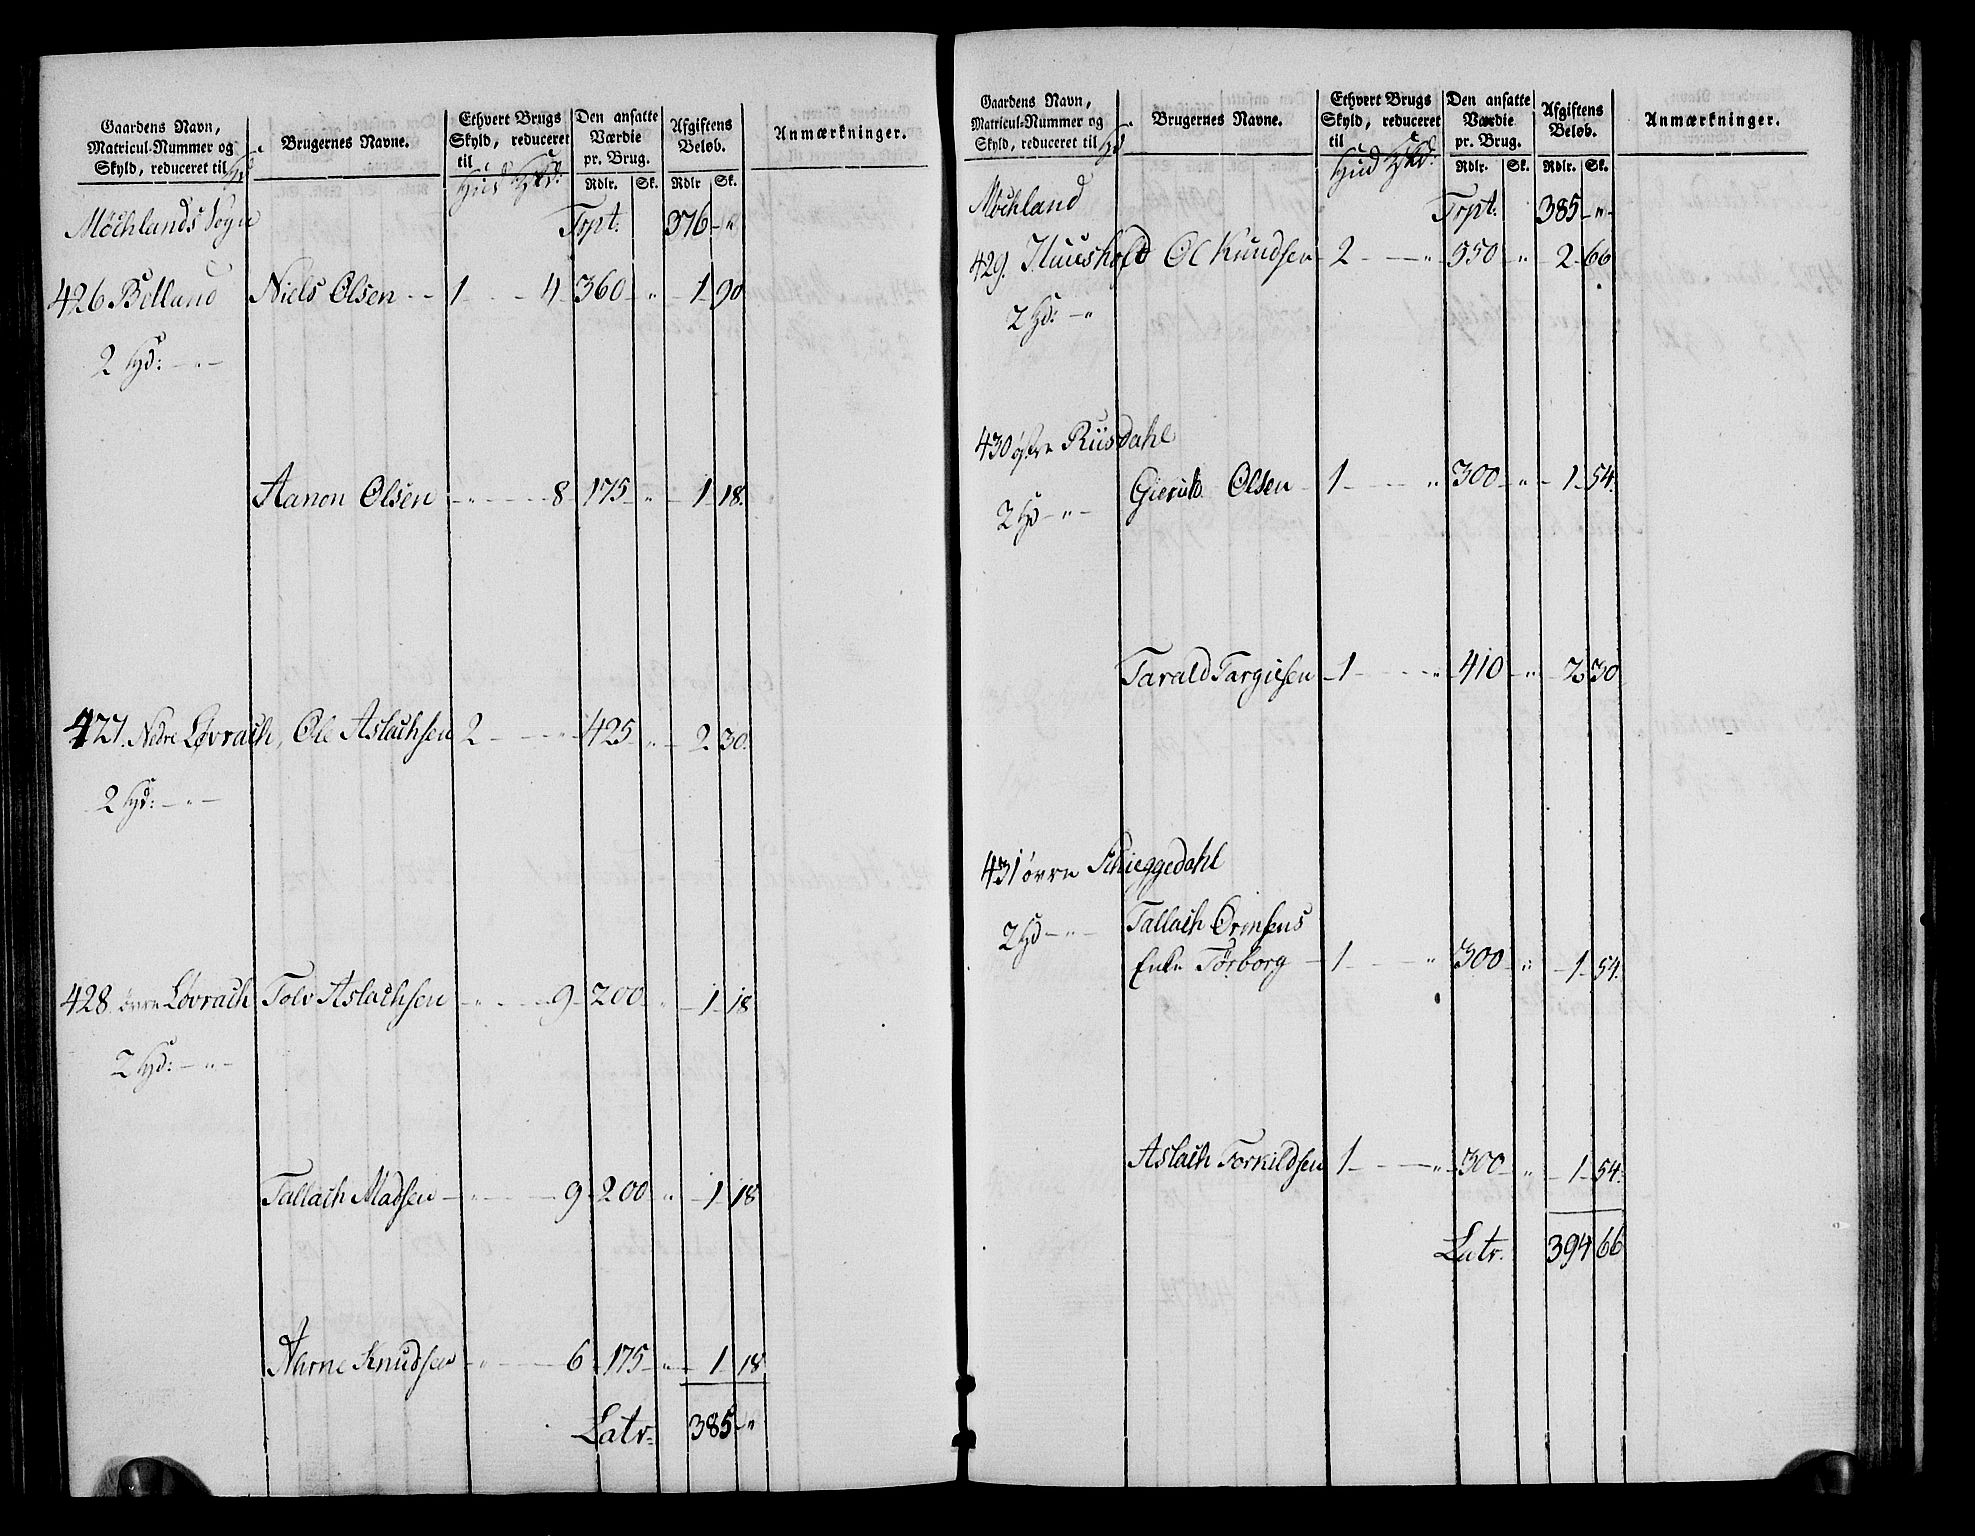 Gaardens Navn, Matricul-Nummer og Skyld, reduceret til Hd | Brugernes Navne. | Ethvert Brugs Skyld, reduceret til Hud Skd: | Den ansatte Værdie pr. Brug. Rdlr. Sk. | Afgiftens Beløb. Rdlr Sk. | Anmærkninger.
Møchlands Sogn Trpt: 376 - "
426 Belland Niels Olsen 1 - 4 - 360 - " - 1 - 90
2 Hd: - " -
Aanon Olsen - " - 8 175 - " - 1 18.
427. Nedre Løvrach, Ole Aslachsen 2 - " - 425 " - 2. 30.
2 Hd: - " -
428. øvre Løvrach Tolv Aslachsen - " - 9 - 200 " - 1 - 18
2 Hd: - " -
Tallach Madsen - " - 9 - 200 " - 1 - 18
Ahrne Knudsen - " - 6 - 175 - " - 1 18
Latr: 385 - "
Gaardens Navn, Matricul-Nummer og Skyld, reduceret til Hd | Brugernes Navne. | Ethvert Brugs Skyld, reduceret til Hud Skd: | Den ansatte Værdie pr. Brug. Rdlr. Sk. | Afgiftens Beløb. Rdlr. Sk. | Anmærkninger.
Møchland Trpt: 385 - " -
429. Ol Knudsen 2 - " - 550 " - 2 - 66
2 Hd: - "
430 østre Riisdahl
Olsen - 1 - " - 300 - " - 1 - 54.
2 Hd - " -
Tarald Targiesen - 1 - " - 410 - " - 2 30
431 øvre Schieggedahl
Tallach Ormsens
2 Hd - " -
Enke Torborg - 1 - " - 300 " - 1 - 54.
Aslach Torkildsen 1 - " - 300 - " - 1 - 54.
Latr. 394 66